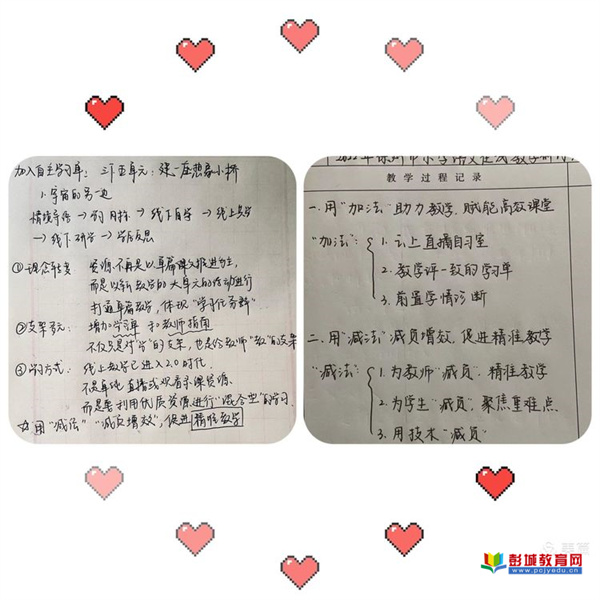 加入自主学习单： 三下五单元：缺一座想象小桥
1.宇宙的另一边
情境导语 → 明目标 → 线下自学 → 线上共学
→ 线下研学 → 学后反思
①理念转变 资源不再是以单篇课文推进为主，
而是以新教学的大单元的活动进行
打通单篇教学，体现“学习任务群”
②支架多元： 增加学习单 和教师指南
不仅只是对“学”的支架，也是给教师“教”的支架
③学习方式： 线上教学已进入2.0时代，
不是单纯直播或观看录课资源，
而是要利用优质资源进行“混合型”的学习.
用“减法”“减负增效”，促进精准教学
2022年徐州市小学语文在线教学研
教学过程记录
一.用“加法”助力教学，赋能高效课堂
“加法”：
1.云上直播自习室
2.教学评一致的学习单
3.前置学情诊断
二.用“减法”减负增效，促进精准教学
“减法”：
1.为教师“减负”，精准教学
2.为学生“减负”，聚焦重难点.
3.用技术“减负”
彭城教育网
www.pcjyedu.cn